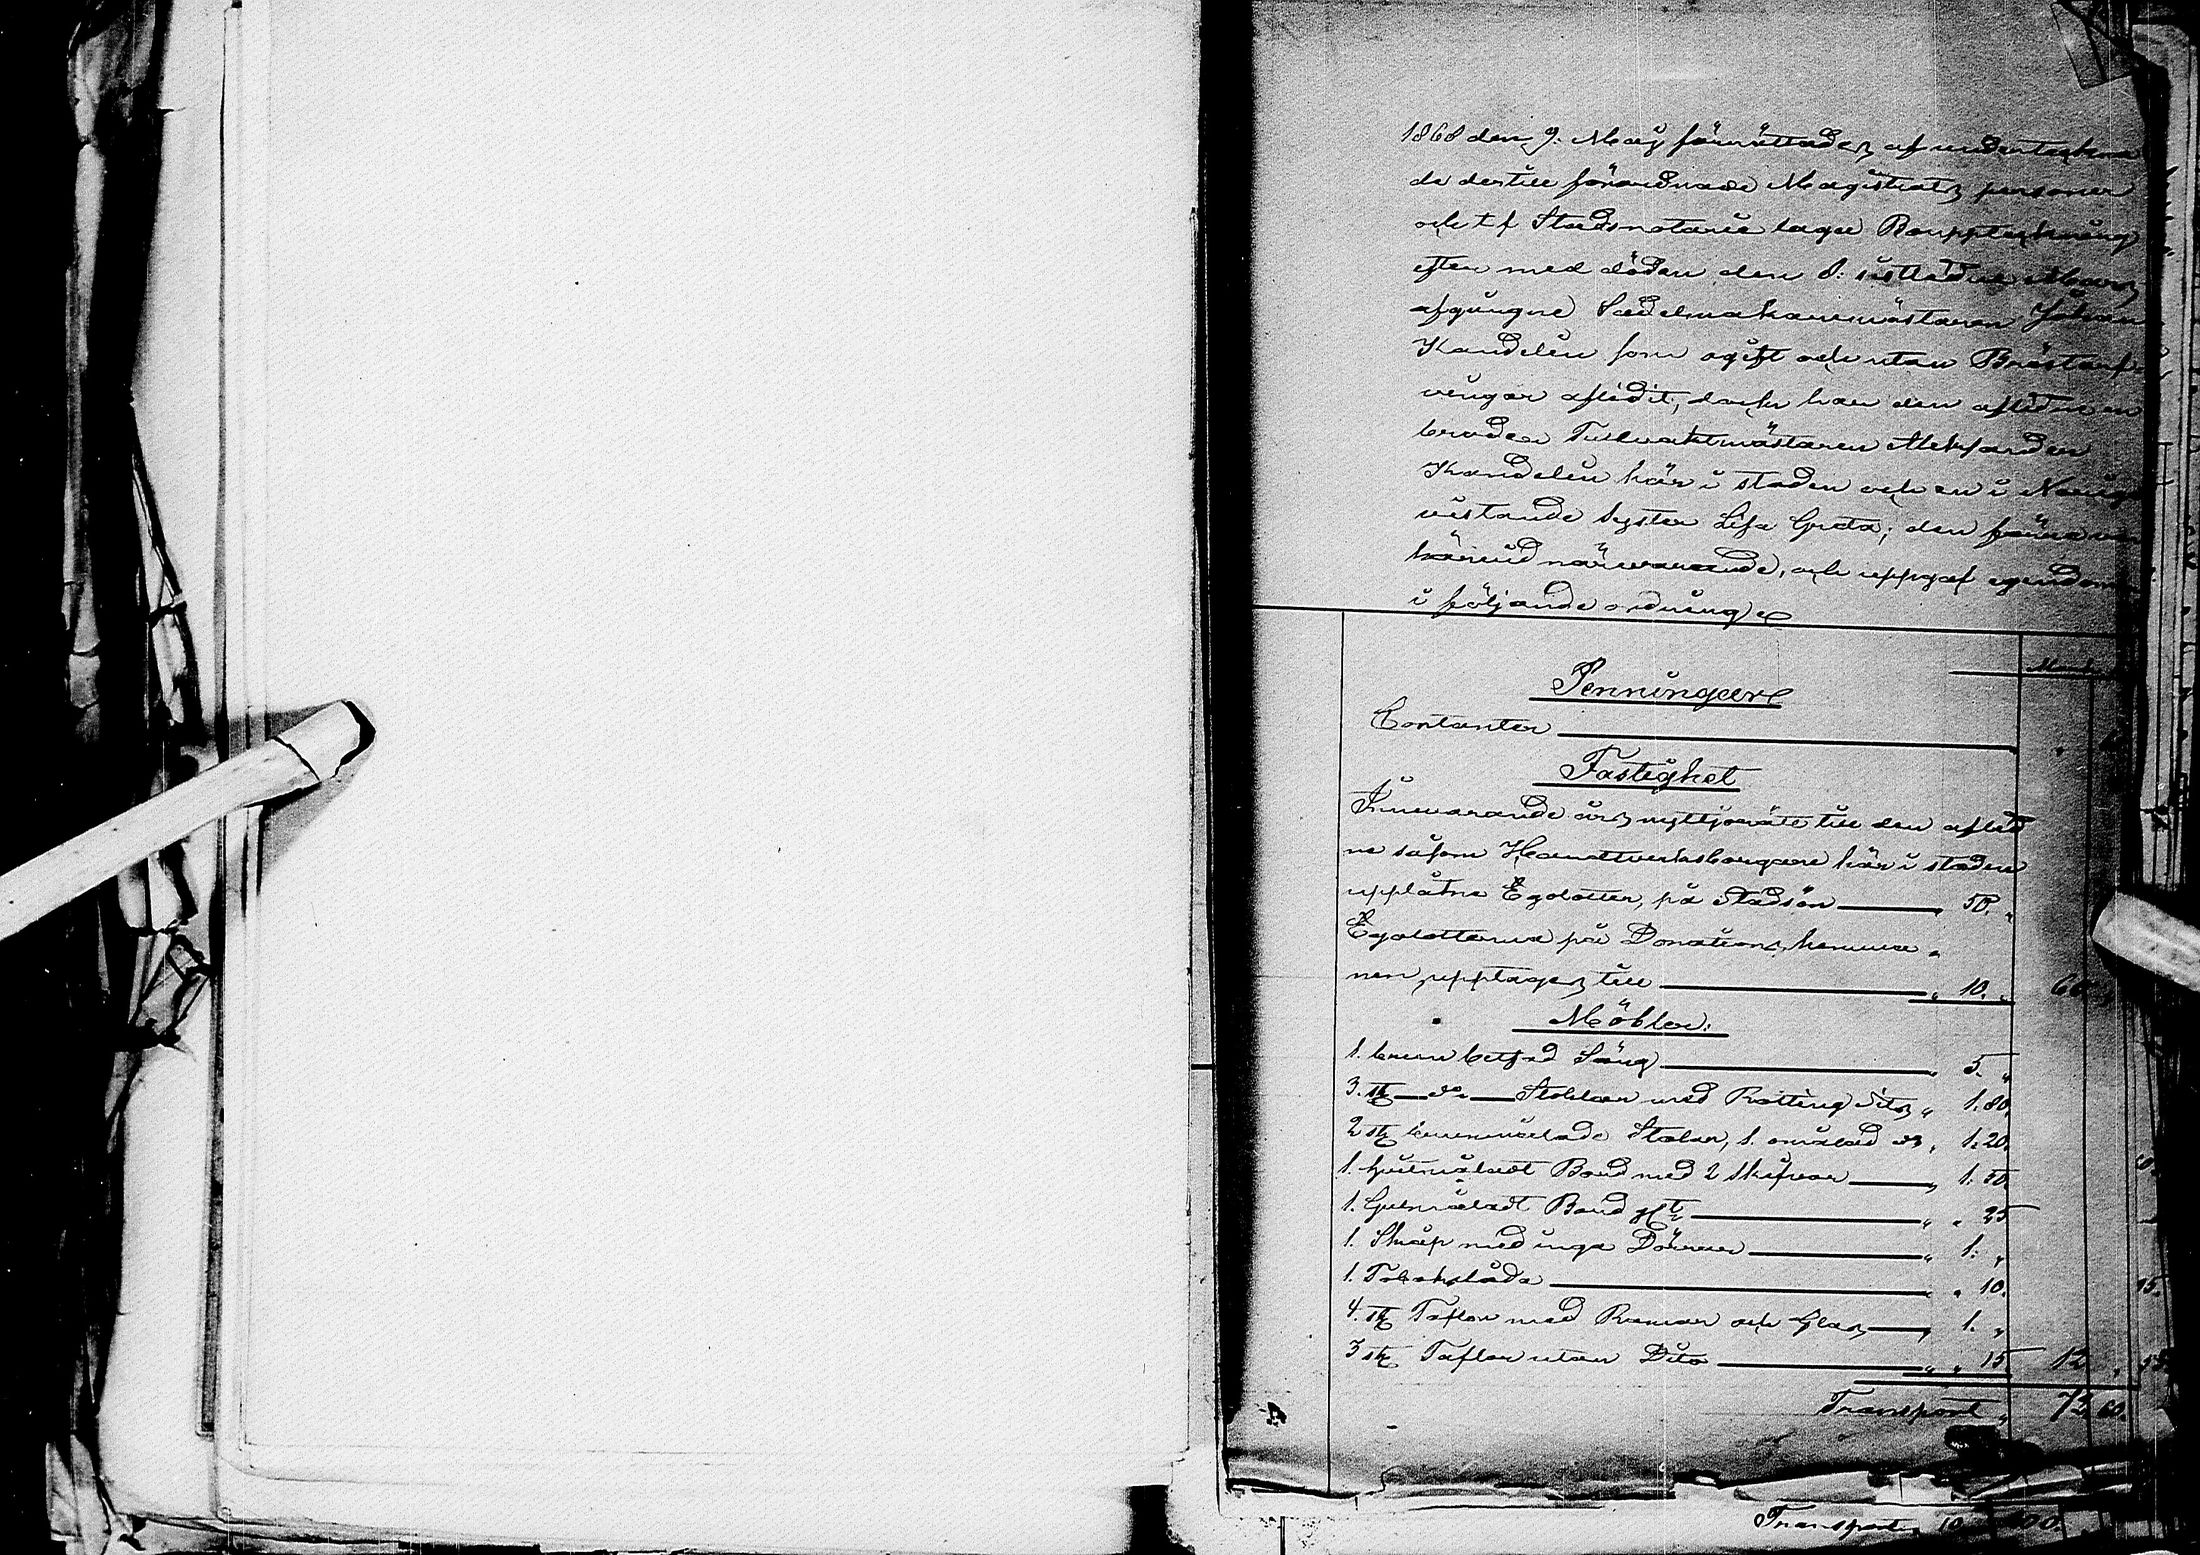 1868 den 9. Maij förrättades af underteckna
de dertill förordnade Magistrats personer
och t f Stadsnotarie laga Bouppteckning
efter med döden den 8: sistledne Mars
afgångne Sadelmakaremästaren Johan
Kandelin som ogift och utan Bröstarf
vingar aflidit, dock har den aflidne en
broder Tullvaktmästaren Alexander
Kandelin här i staden och en i Norige
vistande Syster Lisa Greta; den förra var
härvid närvarande, och uppgaf egendomen
i följande ordning
Penningar
Contanter
Fastighet
Innevarande års nyttjorätt till den aflid
ne såsom Handtverksborgare här i staden
upplåtne Egolotter, på Stadsön 50. "
Egolotterne på Donations hemma
nen, upptages till " 10. "
Möbler:
1. brun betsad Säng " 5. "
3. st do Stolar med Rotting sits " 1. 80.
2 st brunmålade Stolar, 1. omålad " 1. 20.
1. gulmåladt Bord med 2 skifvor " 1. 50.
1. Gulmåladt Bord " " 25
1. Skåp med inga Dörrar " 1. "
1. Tobakslåda " " 10.
4. st Taflor med Ramar och Glas 1. "
3 st Taflor utan Dito " " 15. 12
Transport " 72 60.
Transport